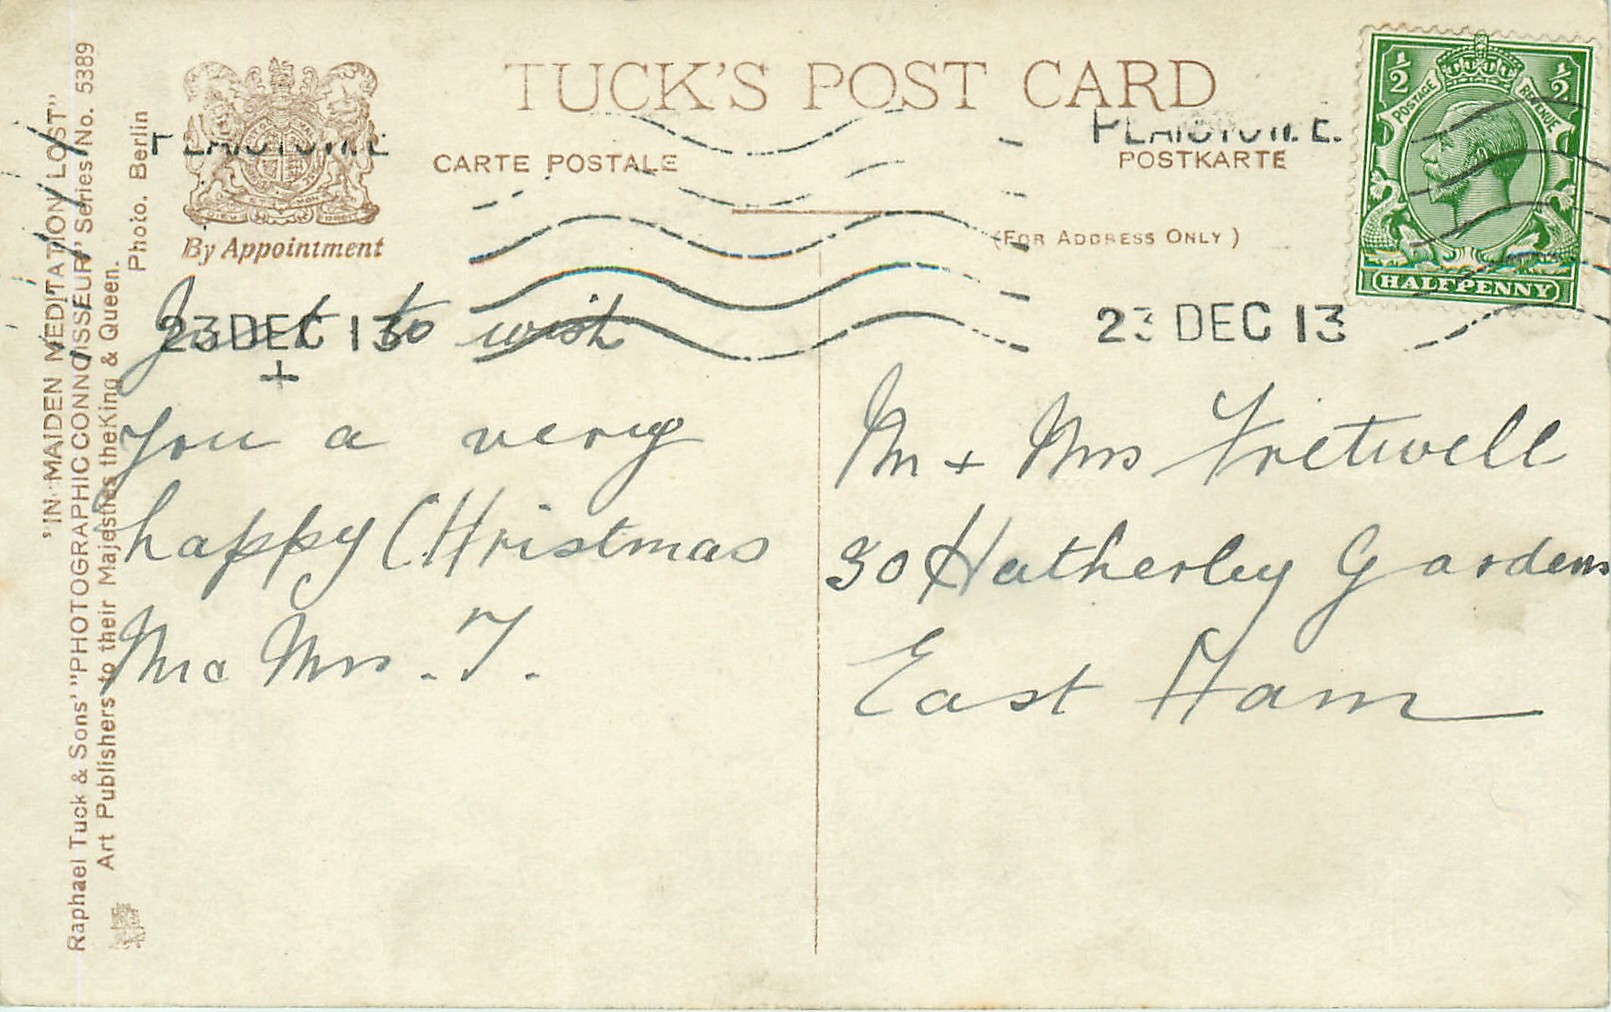 TUCK'S POST CARD
CARTE POSTALE
POSTKARTE
(FOR ADDRESS ONLY)
By Appointment
"IN MAIDEN MEDITATION LOST"
Raphael Tuck & Sons' "PHOTOGRAPHIC CONNOISSEUR" Series No. 5389
Art Publishers to their Majesties the King & Queen.
Photo. Berlin
POSTAGE
REVENUE
½
½
HALFPENNY
23 DEC 13
23 DEC 13
Just to wish
you a very
happy CHristmas
Mr & Mrs. T.
Mr + Mrs Fretwell
30 Hatherley Gardens
East Ham